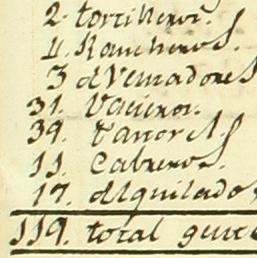 2. tortilleros.
4. Rancheros.
3 dVenadores
31. Vaqueros.
39. Pastores
11. Cabreros.
17. alquilados
119. total gente